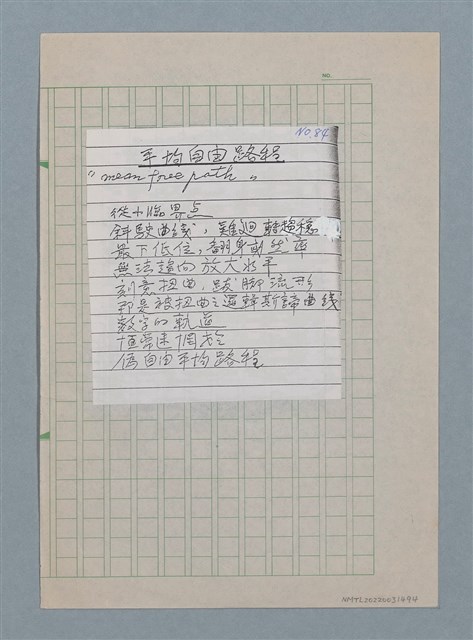 NO.
NO. 84
平均自由路程
"mean free path"
從小臨界点
斜駛曲线，難迴轉趨穩
最下低位，翻身動些庫
無法趨向放大水平
刻意扭曲，跛脚流形
都是被扭曲之選擇斯諦曲线
数字的軌道
恒常迷惘於
偽自由平均路程
NMTL20220031494